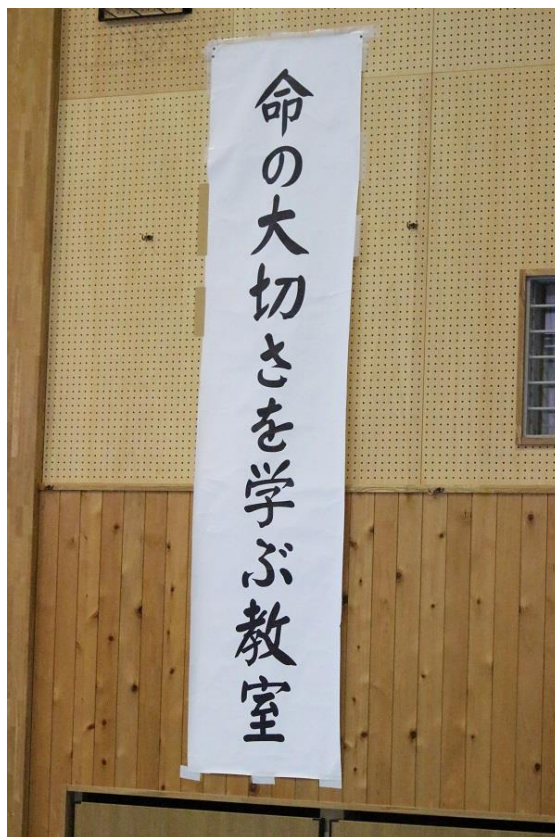 命の大切さを学ぶ教室